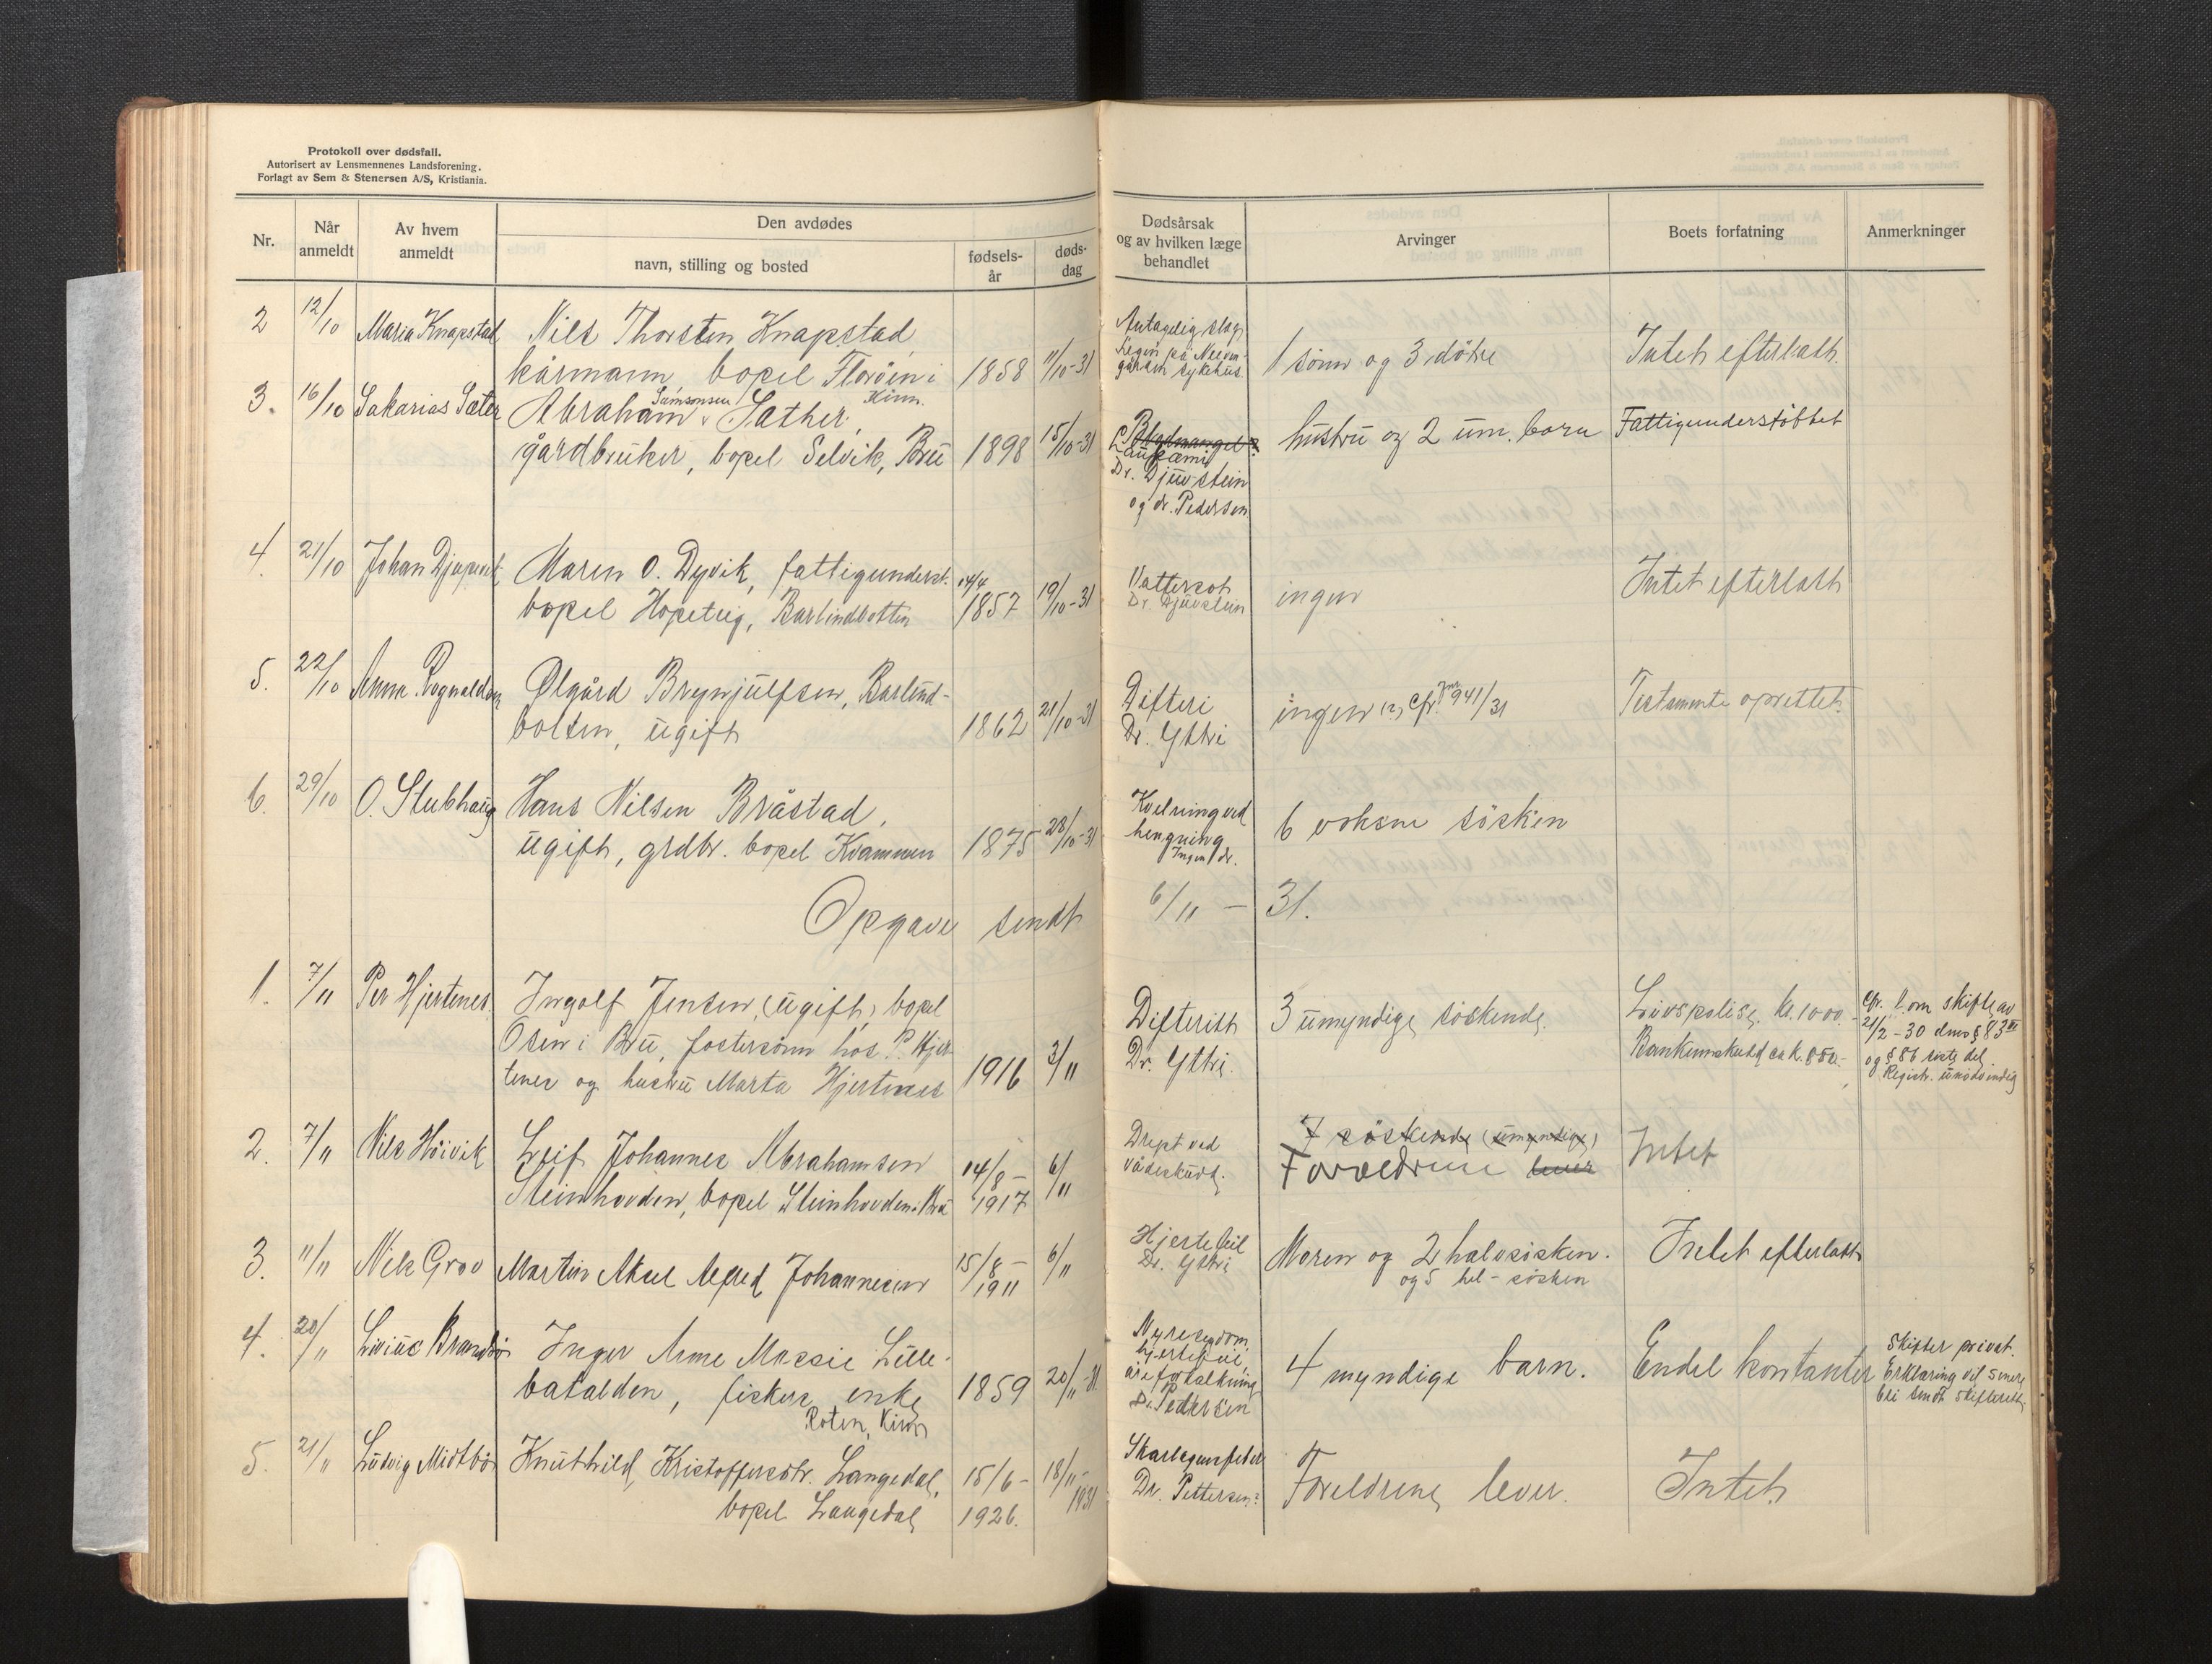 Protokoll over dødsfall.
Autorisert av Lensmennenes Landsforening.
Forlagt av Sem & Stenersen A/S, Kristiania.
Nr.
Når
anmeldt
Av hvem
anmeldt
Den avdødes
navn, stilling og bosted
fødsels-
år
døds-
dag
Dødsårsak
og av hvilken læge
behandlet
Arvinger
Boets forfatning
Anmerkninger
2 12/10 Maria Knapstad Nils Thorsten Knapstad
kårmann, bopel Florøen i 1858 11/10-31
Kinn.
Antagelig slag
Legen på Neeven-
gården sykehus
1 sønn og 3 døtre Intet efterlatt.
3. 16/10 Sakarias Sæter Abraham Samsonsen Sæther,
gårdbruker, bopel Selvik, Bru 1898 15/10-31
Blodmangel
Leukæmi
Dr. Djuvstein
og dr. Pedersen
hustru og 2 um. barn Fattigunderstøttet
4. 21/10 Johan Djupvik Maren O. Dyvik, fattigunderst. 14/4
bopel Hopeteig, Barlindbotten 1857 19/10-31
Vattersot
Dr. Djuvstein
ingen Intet efterlatt
5. 22/10 Anna Rognaldsen Ølgård Brynjulfsen, Barlind-
botten, ugift 1862 21/10-31
Difteri
Dr. Ytthri
ingen (?) cfr. jnr 941/31 Testamente oprettet.
6. 29/10 O. Stubhaug Hans Nilsen Bråstad,
ugift, grdbr. bopel Kvammen 1875 28/10-31
Kvelning ved
hengning
Ingen dr.
6 voksne søsken
Opgave sendt 6/11 - 31.
1. 7/11 Per Hjertenes Ingolf Jensen, (ugift), bopel
Osen i Bru, fostersønn hos P. Hjer-
tenes og hustru Marta Hjertenes 1916 3/11
Difterith
Dr. Ytthri.
3 umyndige søskende.
Livspolise kr. 1000.-
Bankinnskudd ca k. 850.-
Cfr. l. om skifte av
21/2-30 dens § 83
og § 86 siste del.
Registr. unødvendig
2. 7/11 Nils Høivik Leif Johannes Abrahamsen 14/8 - 6/11
Steinhovden, bopel Steinhovden i Bru 1917
Drept ved
vådeskudd.
7 søskende (umyndige)
Foreldrene lever
Intet
3. 11/11 Nels Grov Martin Aksel Alfred Johannesen 15/8 - 1911 6/11
Hjertefeil
Dr. Ytthri
Moren og 2 halvsøsken.
og 5 hel-søsken
Intet efterlatt
4. 20/11 Livius Brandsø Inger Anne Massie Lille-
batalden, fiskers enke 1859 20/11-31.
Roten, Kinn
Nyresygdom,
hjertefeil,
åreforkalkning
Dr. Pedersen
4 myndige barn. Endel kontanter
Skifter privat.
Erklæring vil senere
bli sendt skifteretten
5. 21/11 Ludvig Midtbø Knuthild Kristoffersdtr. Langedal, 15/6 - 18/11-
bopel Langedal 1926. 1931
Skarlagensfeber
Dr. Pettersen
Foreldrene lever. Intet